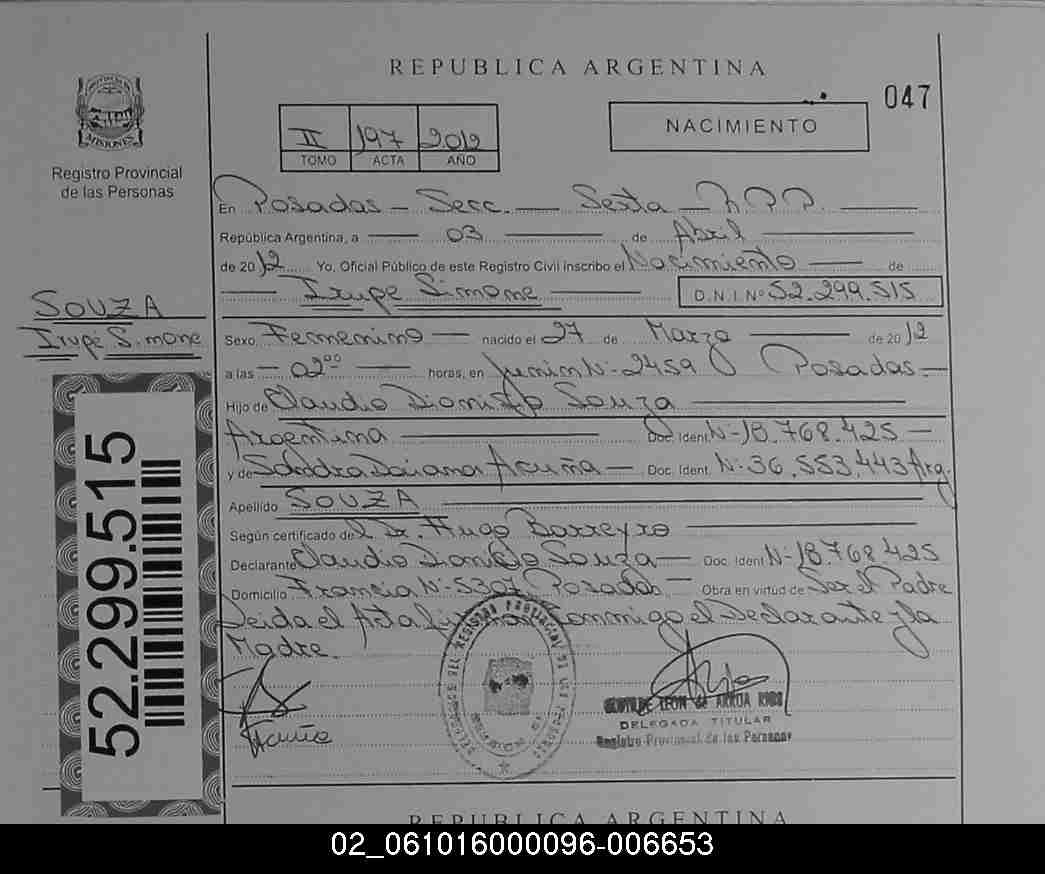 REPUBLICA ARGENTINA
047
MISIONES
Registro Provincial
de las Personas
II 197 2012
TOMO ACTA AÑO
NACIMIENTO
En Posadas - Secc. Sexta R.P.P.
República Argentina, a 03 de Abril
de 2012 Yo, Oficial Público de este Registro Civil inscribo el Nacimiento de
Irupé Simone D.N.I. Nº 52.299.515
SOUZA
Irupé Simone
Sexo Femenino nacido el 27 de Marzo de 2012
a las 02⁰⁰ horas, en Junin Nº 2459 Posadas.
Hijo de Claudio Dionisio Souza
Argentina Doc. Ident Nº 18.768.425
y de Sandra Daiana Acuña Doc. Ident. Nº 36.553.443 Arg.
Apellido SOUZA
Según certificado del Dr. Hugo Barreyro
Declarante Claudio Dionisio Souza Doc. Ident Nº 18.768.425
Domicilio Francia Nº 5307 Posadas Obra en virtud de Ser el Padre
Leida el Acta firman conmigo el Declarante y la
Madre.
52.299.515
Acuña
LEON de ARRUA
DELEGADA TITULAR
Registro Provincial de las Personas
REPUBLICA ARGENTINA
02_061016000096-006653